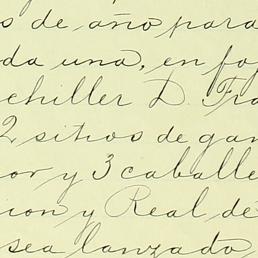 s de año para
da una, en fo
chiller D. Fra
2 sitios de gan
or y 3 caballe
ion y Real de
sea lanzado